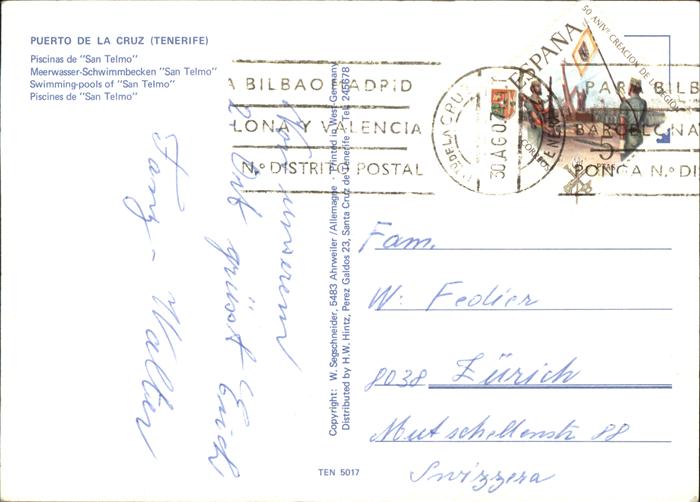 PUERTO DE LA CRUZ (TENERIFE)
Piscinas de "San Telmo"
Meerwasser-Schwimmbecken "San Telmo"
Swimming-pools of "San Telmo"
Piscines de "San Telmo"
Von unserem
2. Ort grüsst Euch
Fany - Walter
Copyright: W. Segschneider, 5483 Ahrweiler/Allemagne · Printed in West Germany
Distributed by H.W. Hintz, Perez Galdos 23, Santa Cruz de Tenerife · Tel. 245678
TEN 5017
A BILBAO MADRID
LONA Y VALENCIA
N.º DISTRITO POSTAL
PTO DE LA CRUZ
30 AGO.7
TENERIFE
50 ANIVº CREACION DE LA LEGION
ESPAÑA
CORREOS
5
PARA BILB
BARCELONA
PONGA N.º DI
Fam.
W. Fedier
8038 Zürich
Mutschellenstr 88
Svizzera